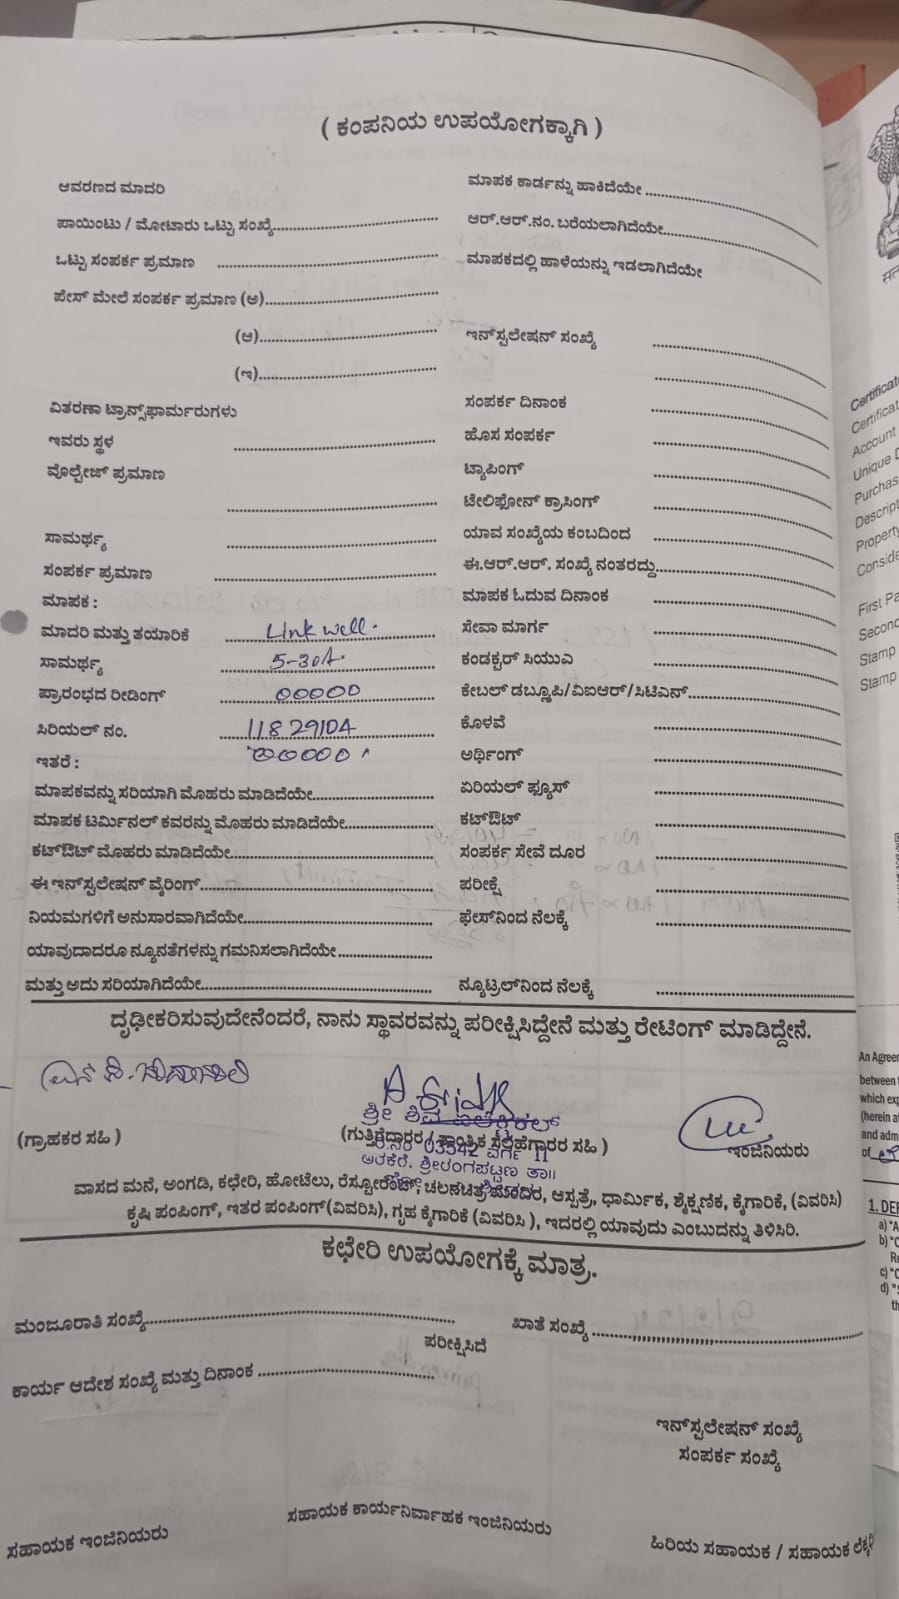 ( ಕಂಪನಿಯ ಉಪಯೋಗಕ್ಕಾಗಿ )
ಆವರಣದ ಮಾದರಿ
ಪಾಯಿಂಟು / ಮೋಟಾರು ಒಟ್ಟು ಸಂಖ್ಯೆ
ಒಟ್ಟು ಸಂಪರ್ಕ ಪ್ರಮಾಣ
ಪೇಸ್ ಮೇಲೆ ಸಂಪರ್ಕ ಪ್ರಮಾಣ (ಅ)
(ಆ)
(ಇ)
ವಿತರಣಾ ಟ್ರಾನ್ಸ್‌ಫಾರ್ಮರುಗಳು
ಇವರು ಸ್ಥಳ
ವೊಲ್ಟೇಜ್ ಪ್ರಮಾಣ
ಸಾಮರ್ಥ್ಯ
ಸಂಪರ್ಕ ಪ್ರಮಾಣ
ಮಾಪಕ :
ಮಾದರಿ ಮತ್ತು ತಯಾರಿಕೆ Linkwell.
ಸಾಮರ್ಥ್ಯ 5-30A.
ಪ್ರಾರಂಭದ ರೀಡಿಂಗ್ 00000
ಸಿರಿಯಲ್ ನಂ. 1182910A
ಇತರೆ :
ಮಾಪಕವನ್ನು ಸರಿಯಾಗಿ ಮೊಹರು ಮಾಡಿದೆಯೇ
ಮಾಪಕ ಟರ್ಮಿನಲ್ ಕವರನ್ನು ಮೊಹರು ಮಾಡಿದೆಯೇ
ಕಟ್‌ಔಟ್ ಮೊಹರು ಮಾಡಿದೆಯೇ
ಈ ಇನ್‌ಸ್ಟಲೇಷನ್ ವೈರಿಂಗ್
ನಿಯಮಗಳಿಗೆ ಅನುಸಾರವಾಗಿದೆಯೇ
ಯಾವುದಾದರೂ ನ್ಯೂನತೆಗಳನ್ನು ಗಮನಿಸಲಾಗಿದೆಯೇ
ಮತ್ತು ಅದು ಸರಿಯಾಗಿದೆಯೇ
ಮಾಪಕ ಕಾರ್ಡನ್ನು ಹಾಕಿದೆಯೇ
ಆರ್.ಆರ್.ನಂ. ಬರೆಯಲಾಗಿದೆಯೇ
ಮಾಪಕದಲ್ಲಿ ಹಾಳೆಯನ್ನು ಇಡಲಾಗಿದೆಯೇ
ಇನ್‌ಸ್ಪಲೇಷನ್ ಸಂಖ್ಯೆ
ಸಂಪರ್ಕ ದಿನಾಂಕ
ಹೊಸ ಸಂಪರ್ಕ
ಟ್ಯಾಪಿಂಗ್
ಟೇಲಿಫೋನ್ ಕ್ರಾಸಿಂಗ್
ಯಾವ ಸಂಖ್ಯೆಯ ಕಂಬದಿಂದ
ಈ.ಆರ್.ಆರ್. ಸಂಖ್ಯೆ ನಂತರದ್ದು
ಮಾಪಕ ಓದುವ ದಿನಾಂಕ
ಸೇವಾ ಮಾರ್ಗ
ಕಂಡಕ್ಟರ್ ಸಿಯುಎ
ಕೇಬಲ್ ಡಬ್ಲೂಪಿ/ವಿಐಆರ್/ಸಿಟಿಎನ್
ಕೊಳವೆ
ಅರ್ಥಿಂಗ್
ಏರಿಯಲ್ ಫ್ಯೂಸ್
ಕಟ್‌ಔಟ್
ಸಂಪರ್ಕ ಸೇವೆ ದೂರ
ಪರೀಕ್ಷೆ
ಫೇಸ್‌ನಿಂದ ನೆಲಕ್ಕೆ
ನ್ಯೂಟ್ರಲ್‌ನಿಂದ ನೆಲಕ್ಕೆ
ದೃಢೀಕರಿಸುವುದೇನೆಂದರೆ, ನಾನು ಸ್ಥಾವರವನ್ನು ಪರೀಕ್ಷಿಸಿದ್ದೇನೆ ಮತ್ತು ರೇಟಿಂಗ್ ಮಾಡಿದ್ದೇನೆ.
(ಗ್ರಾಹಕರ ಸಹಿ )
(ಗುತ್ತಿಗೆದಾರರ / ತಾಂತ್ರಿಕ ಸಲಹೆಗಾರರ ಸಹಿ )
ಇಂಜಿನಿಯರು
ಅರಕೆರೆ. ಶ್ರೀರಂಗಪಟ್ಟಣ ತಾ॥
ವಾಸದ ಮನೆ, ಅಂಗಡಿ, ಕಛೇರಿ, ಹೋಟೆಲು, ರೆಸ್ಟೋರೆಂಟ್, ಚಲನಚಿತ್ರ ಮಂದಿರ, ಆಸ್ಪತ್ರೆ, ಧಾರ್ಮಿಕ, ಶೈಕ್ಷಣಿಕ, ಕೈಗಾರಿಕೆ, (ವಿವರಿಸಿ)
ಕೃಷಿ ಪಂಪಿಂಗ್, ಇತರ ಪಂಪಿಂಗ್(ವಿವರಿಸಿ), ಗೃಹ ಕೈಗಾರಿಕೆ (ವಿವರಿಸಿ ), ಇದರಲ್ಲಿ ಯಾವುದು ಎಂಬುದನ್ನು ತಿಳಿಸಿರಿ.
ಕಛೇರಿ ಉಪಯೋಗಕ್ಕೆ ಮಾತ್ರ.
ಮಂಜೂರಾತಿ ಸಂಖ್ಯೆ ಖಾತೆ ಸಂಖ್ಯೆ
ಪರೀಕ್ಷಿಸಿದೆ
ಕಾರ್ಯ ಆದೇಶ ಸಂಖ್ಯೆ ಮತ್ತು ದಿನಾಂಕ
ಇನ್‌ಸ್ಪಲೇಷನ್ ಸಂಖ್ಯೆ
ಸಂಪರ್ಕ ಸಂಖ್ಯೆ
ಸಹಾಯಕ ಇಂಜಿನಿಯರು
ಸಹಾಯಕ ಕಾರ್ಯನಿರ್ವಾಹಕ ಇಂಜಿನಿಯರು
ಹಿರಿಯ ಸಹಾಯಕ / ಸಹಾಯಕ
Account
First Pa
Stamp
Stamp
An Agree
between
which exp
(herein a
and adm
of
1. DE